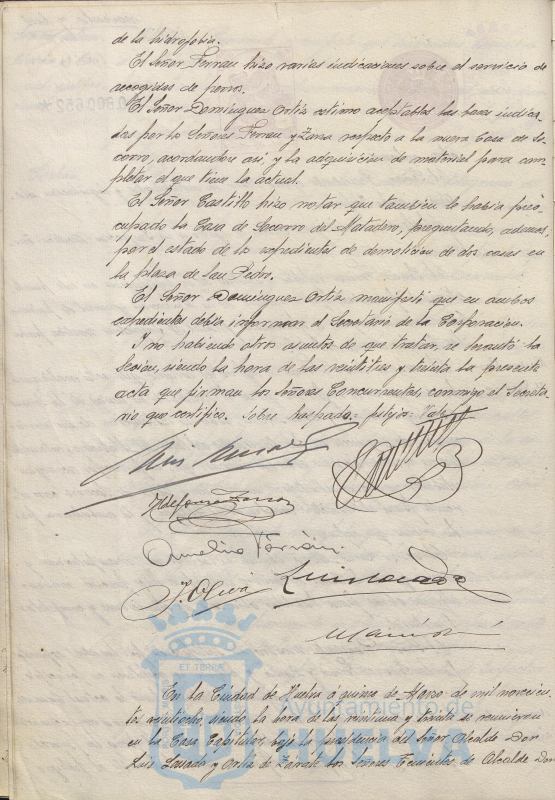 de la hidrofobia.
El Señor Terrau hizo varias indicaciones sobre el servicio de
recogidas de perros.
El Señor Dominguez Ortiz estimo aceptables las bases indica-
das por los Señores Terrau y Zarza respecto a la nueva Casa de So-
corro, acordandose asi, y la adquisicion de material para com-
pletar el que tiene la actual.
El Señor Castillo hizo notar que tambien le habia preo-
cupado la Casa de Socorro del Matadero, preguntando, ademas,
por el estado de los expedientes de demolicion de dos casas en
la plaza de San Pedro.
El Señor Dominguez Ortiz manifestó que en ambos
expedientes debia informar el Secretario de la Corporacion.
Y no habiendo otros asuntos de que tratar, se levantó la
sesion, siendo la hora de las veintitres y treinta la presente
acta que firman los Señores Concurrentes, conmigo el Secreta-
rio que certifico. Sobre raspado: Vale
Ildefonso Zarza
Aurelio
J. Oliva
ET TERRA
En la Ciudad de Huelva á quince de Marzo de mil novecien-
tos veintiocho, siendo la hora de las veintiuna y treinta se reunieron
en la Casa Capitular, bajo la presidencia del Señor Alcalde Don
Luis y Ortiz de Zárate los Señores Tenientes de Alcalde Don
Ayuntamiento de
HUELVA